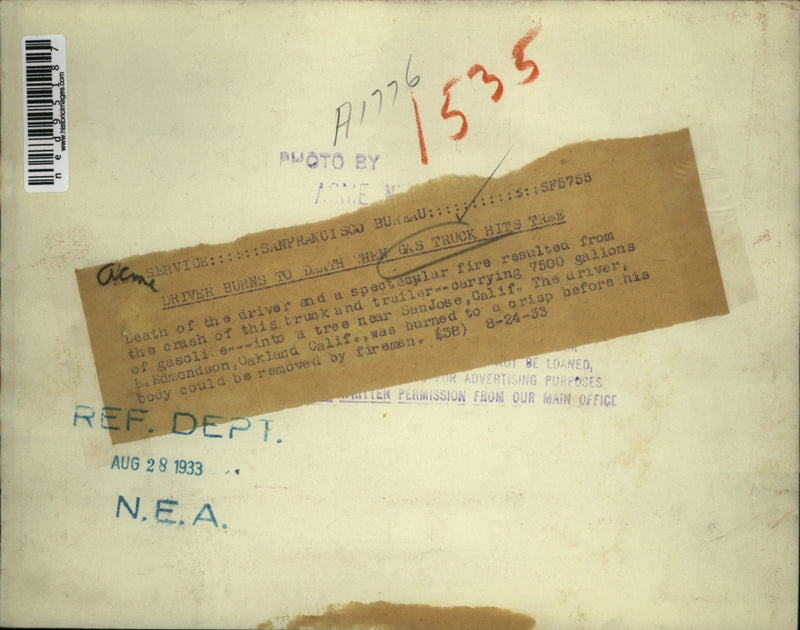 ned95187
www.historicimages.com
A1776
1535
PHOTO BY
ACME
SERVICE::::::SANFRANCISCO BUREAU::::::::::3::SF5755
acme
DRIVER BURNS TO DEATH WHEN GAS TRUCK HITS TREE
Death of the driver and a spectacular fire resulted from
the crash of this truck and trailer--carrying 7500 gallons
of gasoline---into a tree near SanJose,Calif. The driver,
Edmondson,Oakland Calif.,was burned to a crisp before his
body could be removed by firemen. (38) 8-24-33
NOT BE LOANED,
FOR ADVERTISING PURPOSES
WRITTEN PERMISSION FROM OUR MAIN OFFICE
REF. DEPT.
AUG 28 1933
N.E.A.